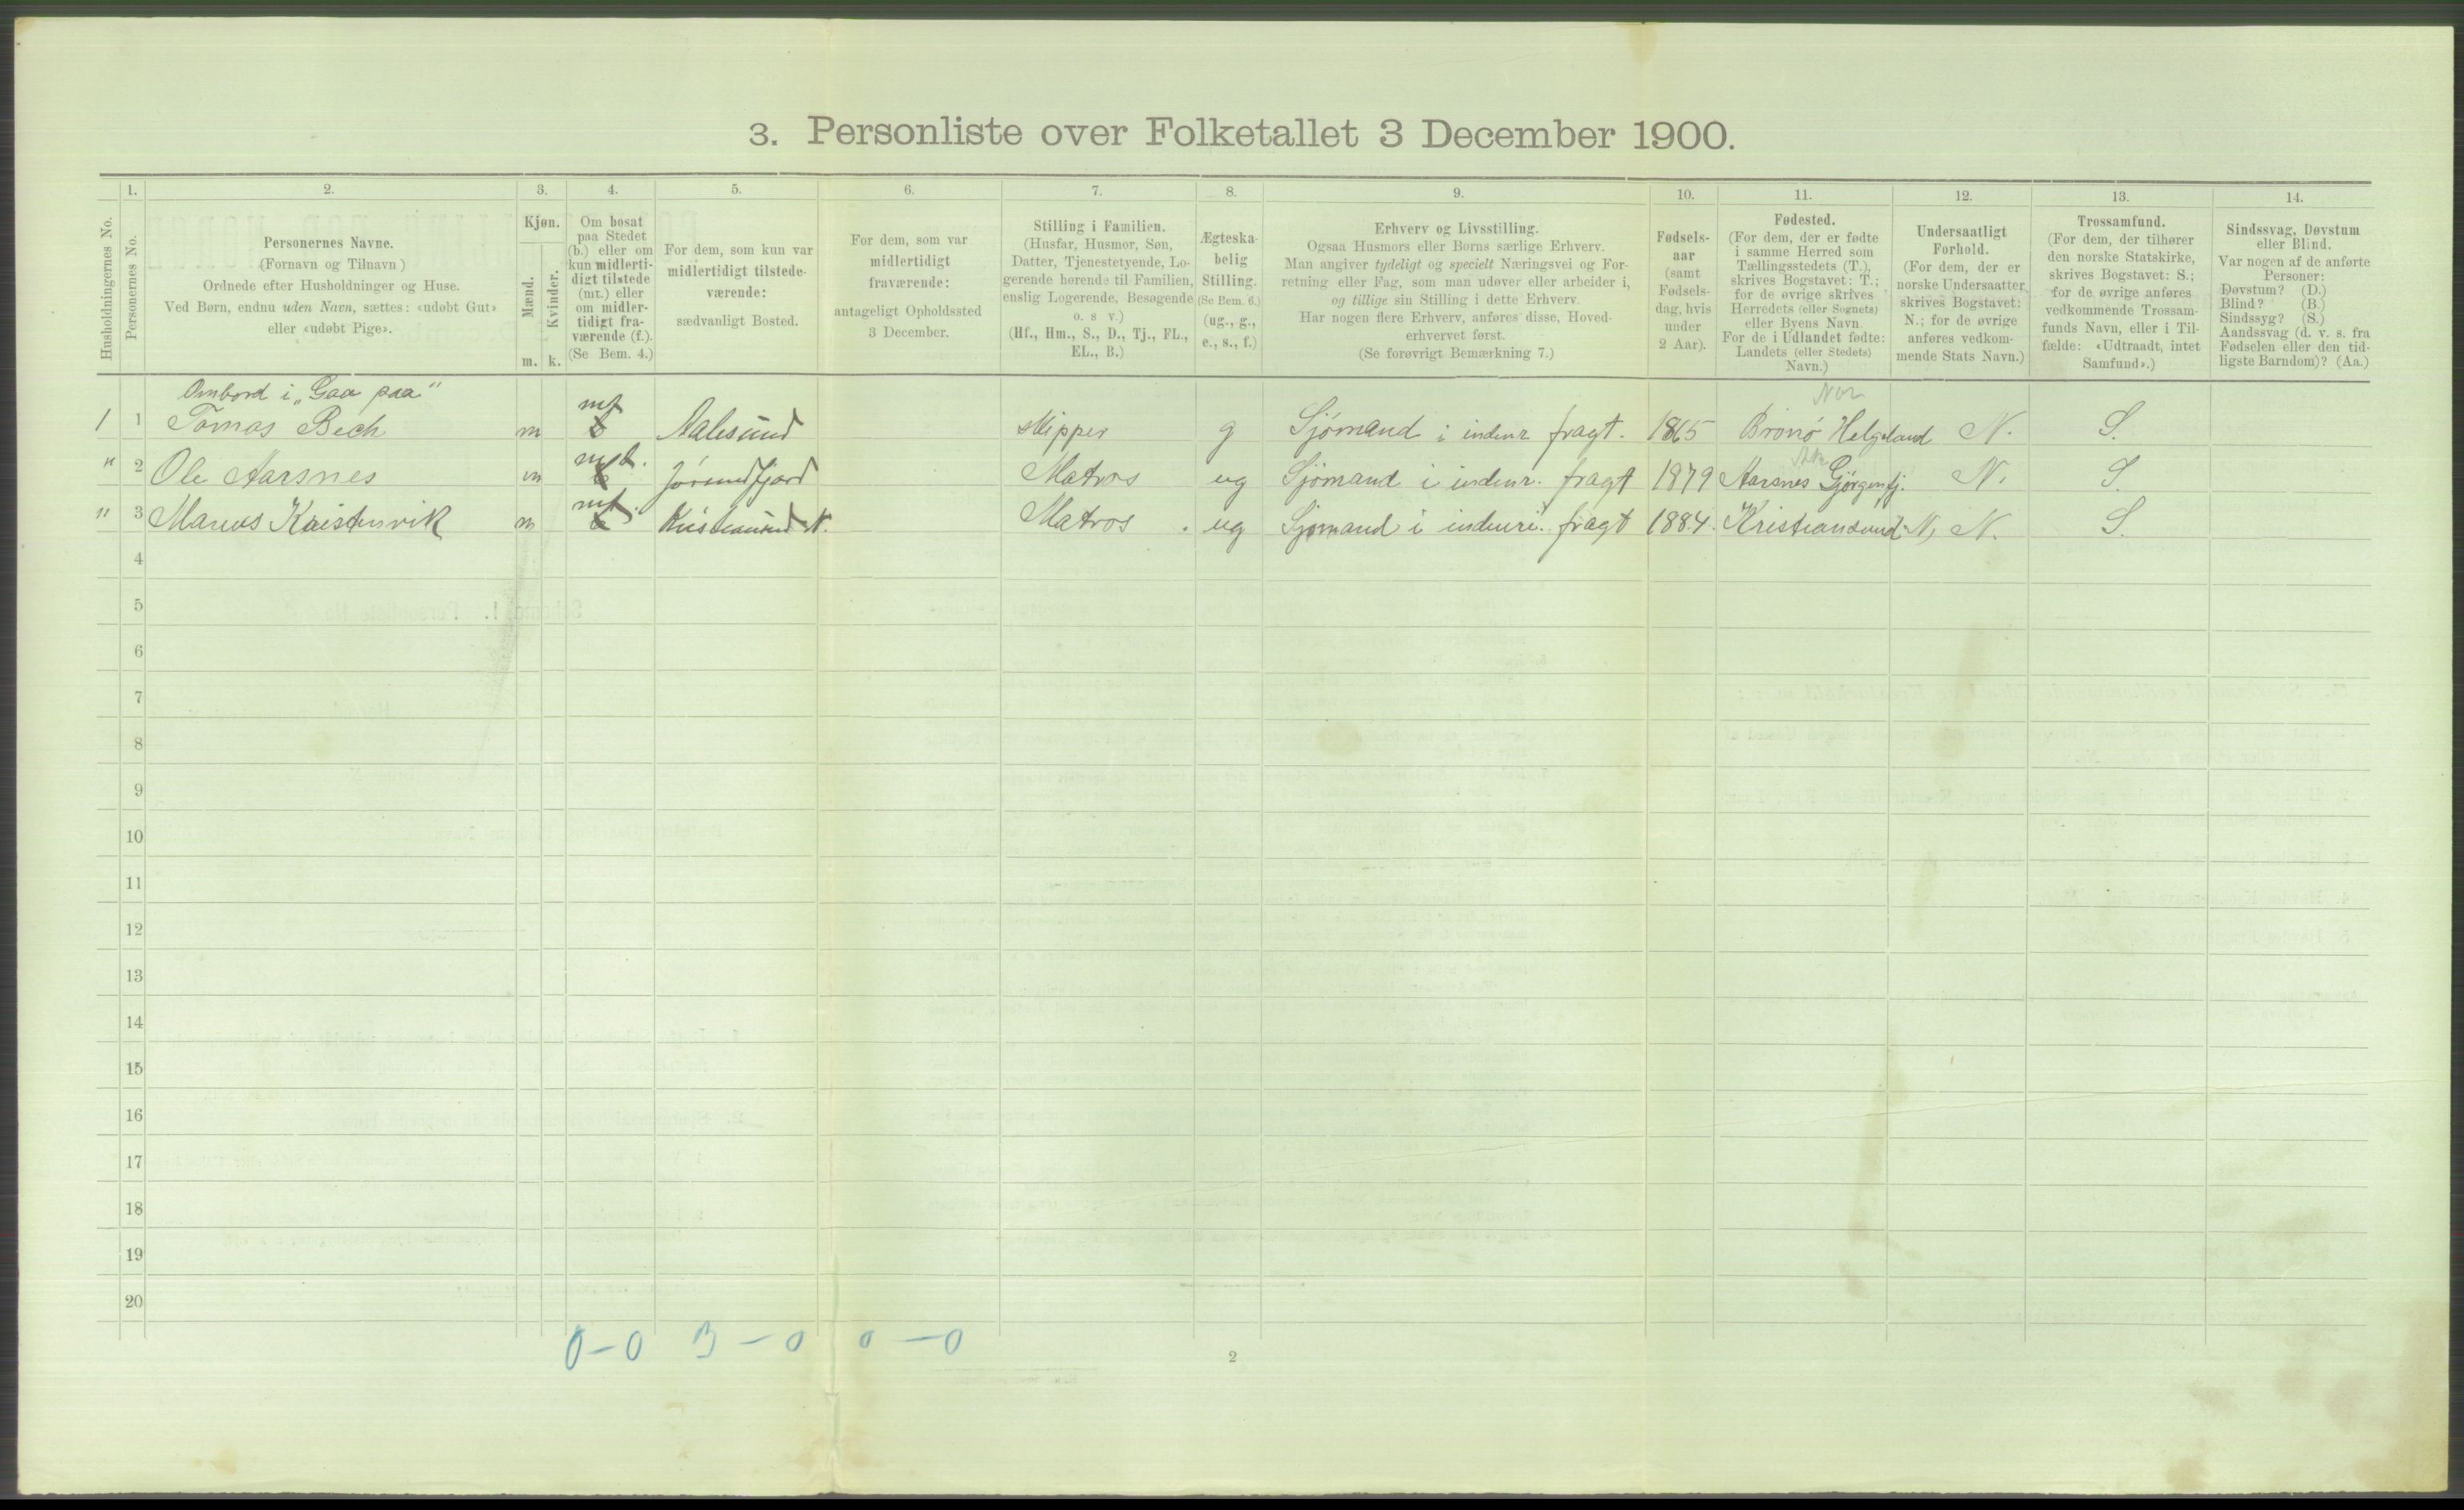 3. Personliste over Folketallet 3 December 1900.
1. 2. 3. 4. 5. 6. 7. 8. 9. 10. 11. 12. 13. 14.
Husholdningernes No.
Personernes No.
Personernes Navne.
(Fornavn og Tilnavn)
Ordnede efter Husholdninger og Huse.
Ved Børn, endnu uden Navn, sættes: «udøbt Gut»
eller «udøbt Pige».
Kjøn.
Mænd.
Kvinder.
m. k.
Om bosat
paa Stedet
(b.) eller om
kun midlerti-
digt tilstede
(mt.) eller
om midler-
tidigt fra-
værende (f.).
(Se Bem. 4.)
For dem, som kun var
midlertidigt tilstede-
værende:
sædvanligt Bosted.
For dem, som var
midlertidigt
fraværende:
antageligt Opholdssted
3 December.
Stilling i Familien.
(Husfar, Husmor, Søn,
Datter, Tjenestetyende, Lo-
gerende hørende til Familien,
enslig Logerende, Besøgende
o. s. v.)
(Hf., Hm., S., D., Tj., FL.,
EL., B.)
Ægteska-
belig
Stilling.
(Se Bem. 6.)
(ug., g.,
e., s., f.)
Erhverv og Livsstilling.
Ogsaa Husmors eller Børns særlige Erhverv.
Man angiver tydeligt og specielt Næringsvei og For-
retning eller Fag, som man udøver eller arbeider i,
og tillige sin Stilling i dette Erhverv.
Har nogen flere Erhverv, anføres disse, Hoved-
erhvervet først.
(Se forøvrigt Bemærkning 7.)
Fødsels-
aar
(samt
Fødsels-
dag, hvis
under
2 Aar).
Fødested.
(For dem, der er fødte
i samme Herred som
Tællingsstedets (T.),
skrives Bogstavet: T.;
for de øvrige skrives
Herredets (eller Sognets)
eller Byens Navn.
For de i Udlandet fødte:
Landets (eller Stedets)
Navn.)
Undersaatligt
Forhold.
(For dem, der er
norske Undersaatter,
skrives Bogstavet:
N.; for de øvrige
anføres vedkom-
mende Stats Navn.)
Trossamfund.
(For dem, der tilhører
den norske Statskirke,
skrives Bogstavet: S.;
for de øvrige anføres
vedkommende Trossam-
funds Navn, eller i Til-
fælde: «Udtraadt, intet
Samfund».)
Sindssvag, Døvstum
eller Blind.
Var nogen af de anførte
Personer:
Døvstum? (D.)
Blind? (B.)
Sindssyg? (S.)
Aandssvag (d. v. s. fra
Fødselen eller den tid-
ligste Barndom)? (Aa.)
Ombord i „Gaa paa"
1 1 Tomas Bech m mt b Aalesund skipper g Sjømand i indenr fragt. 1865 Brønø Helgeland N. S.
" 2 Ole Aarsnes m mt. b Jørundfjord Matros ug Sjømand i indenr. fragt 1879 Aarsnes Gjørgenfj. N. S.
" 3 Marius Kristenvik m mt. b Kristiansund N. Matros. ug Sjømand i indenri. fragt 1884. Kristiansund N, N. S.
4
5
6
7
8
9
10
11
12
13
14
15
16
17
18
19
20
0 - 0 3 - 0 0 - 0
2